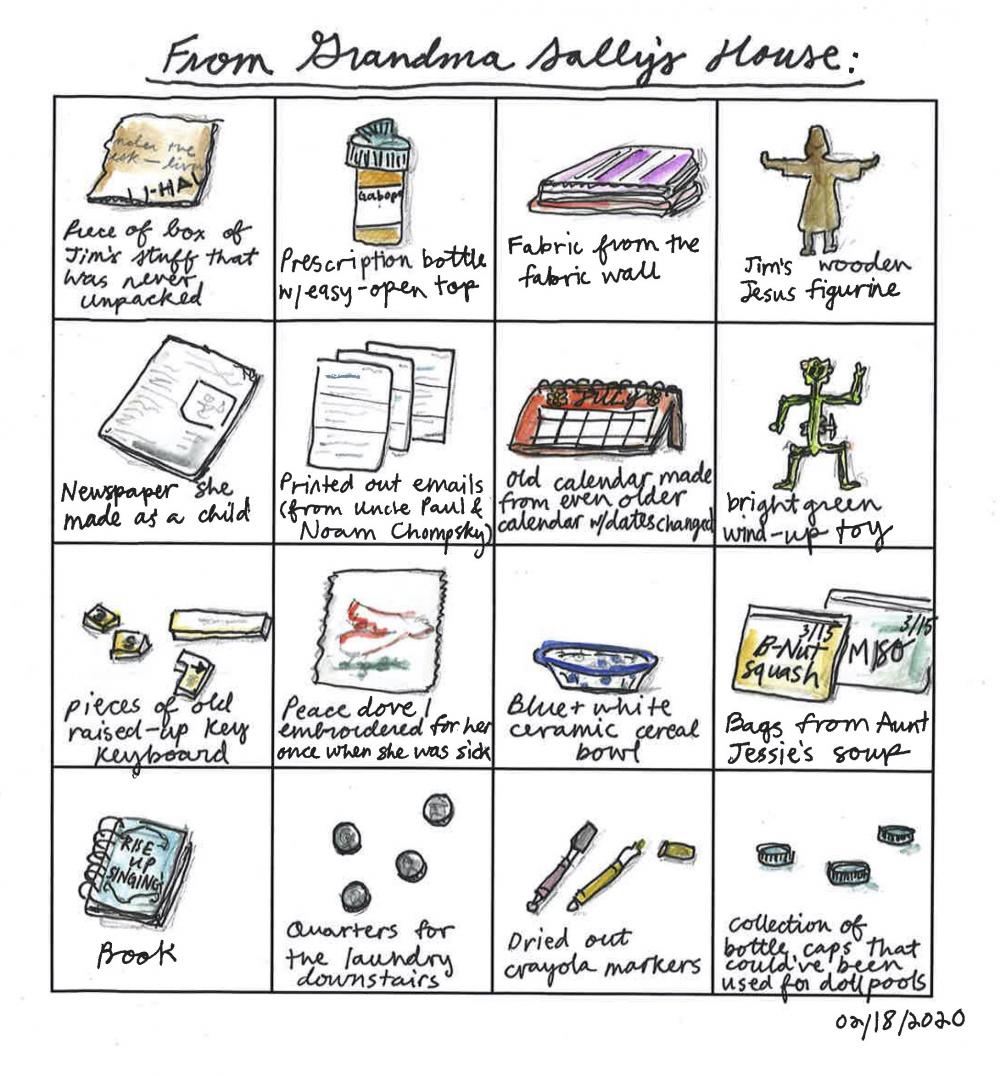 From Grandma Sally's House:
under the
desk — livin
LI-HA
Piece of box of
Jim's stuff that
was never
unpacked
Gabap
Prescription bottle
w/easy-open top
Fabric from the
fabric wall
Jim's wooden
Jesus figurine
Newspaper she
made as a child
Printed out emails
(from Uncle Paul &
Noam Chompsky)
JULY
old calendar made
from even older
calendar w/dates changed
bright green
wind-up toy
pieces of old
raised-up key
keyboard
Peace dove I
embroidered for her
once when she was sick
Blue + white
ceramic cereal
bowl
3/15
B-Nut
squash
3/15
MISO
Bags from Aunt
Jessie's soup
RISE
UP
SINGING
Book
Quarters for
the laundry
downstairs
Dried out
crayola markers
collection of
bottle caps that
could've been
used for doll pools
02/18/2020